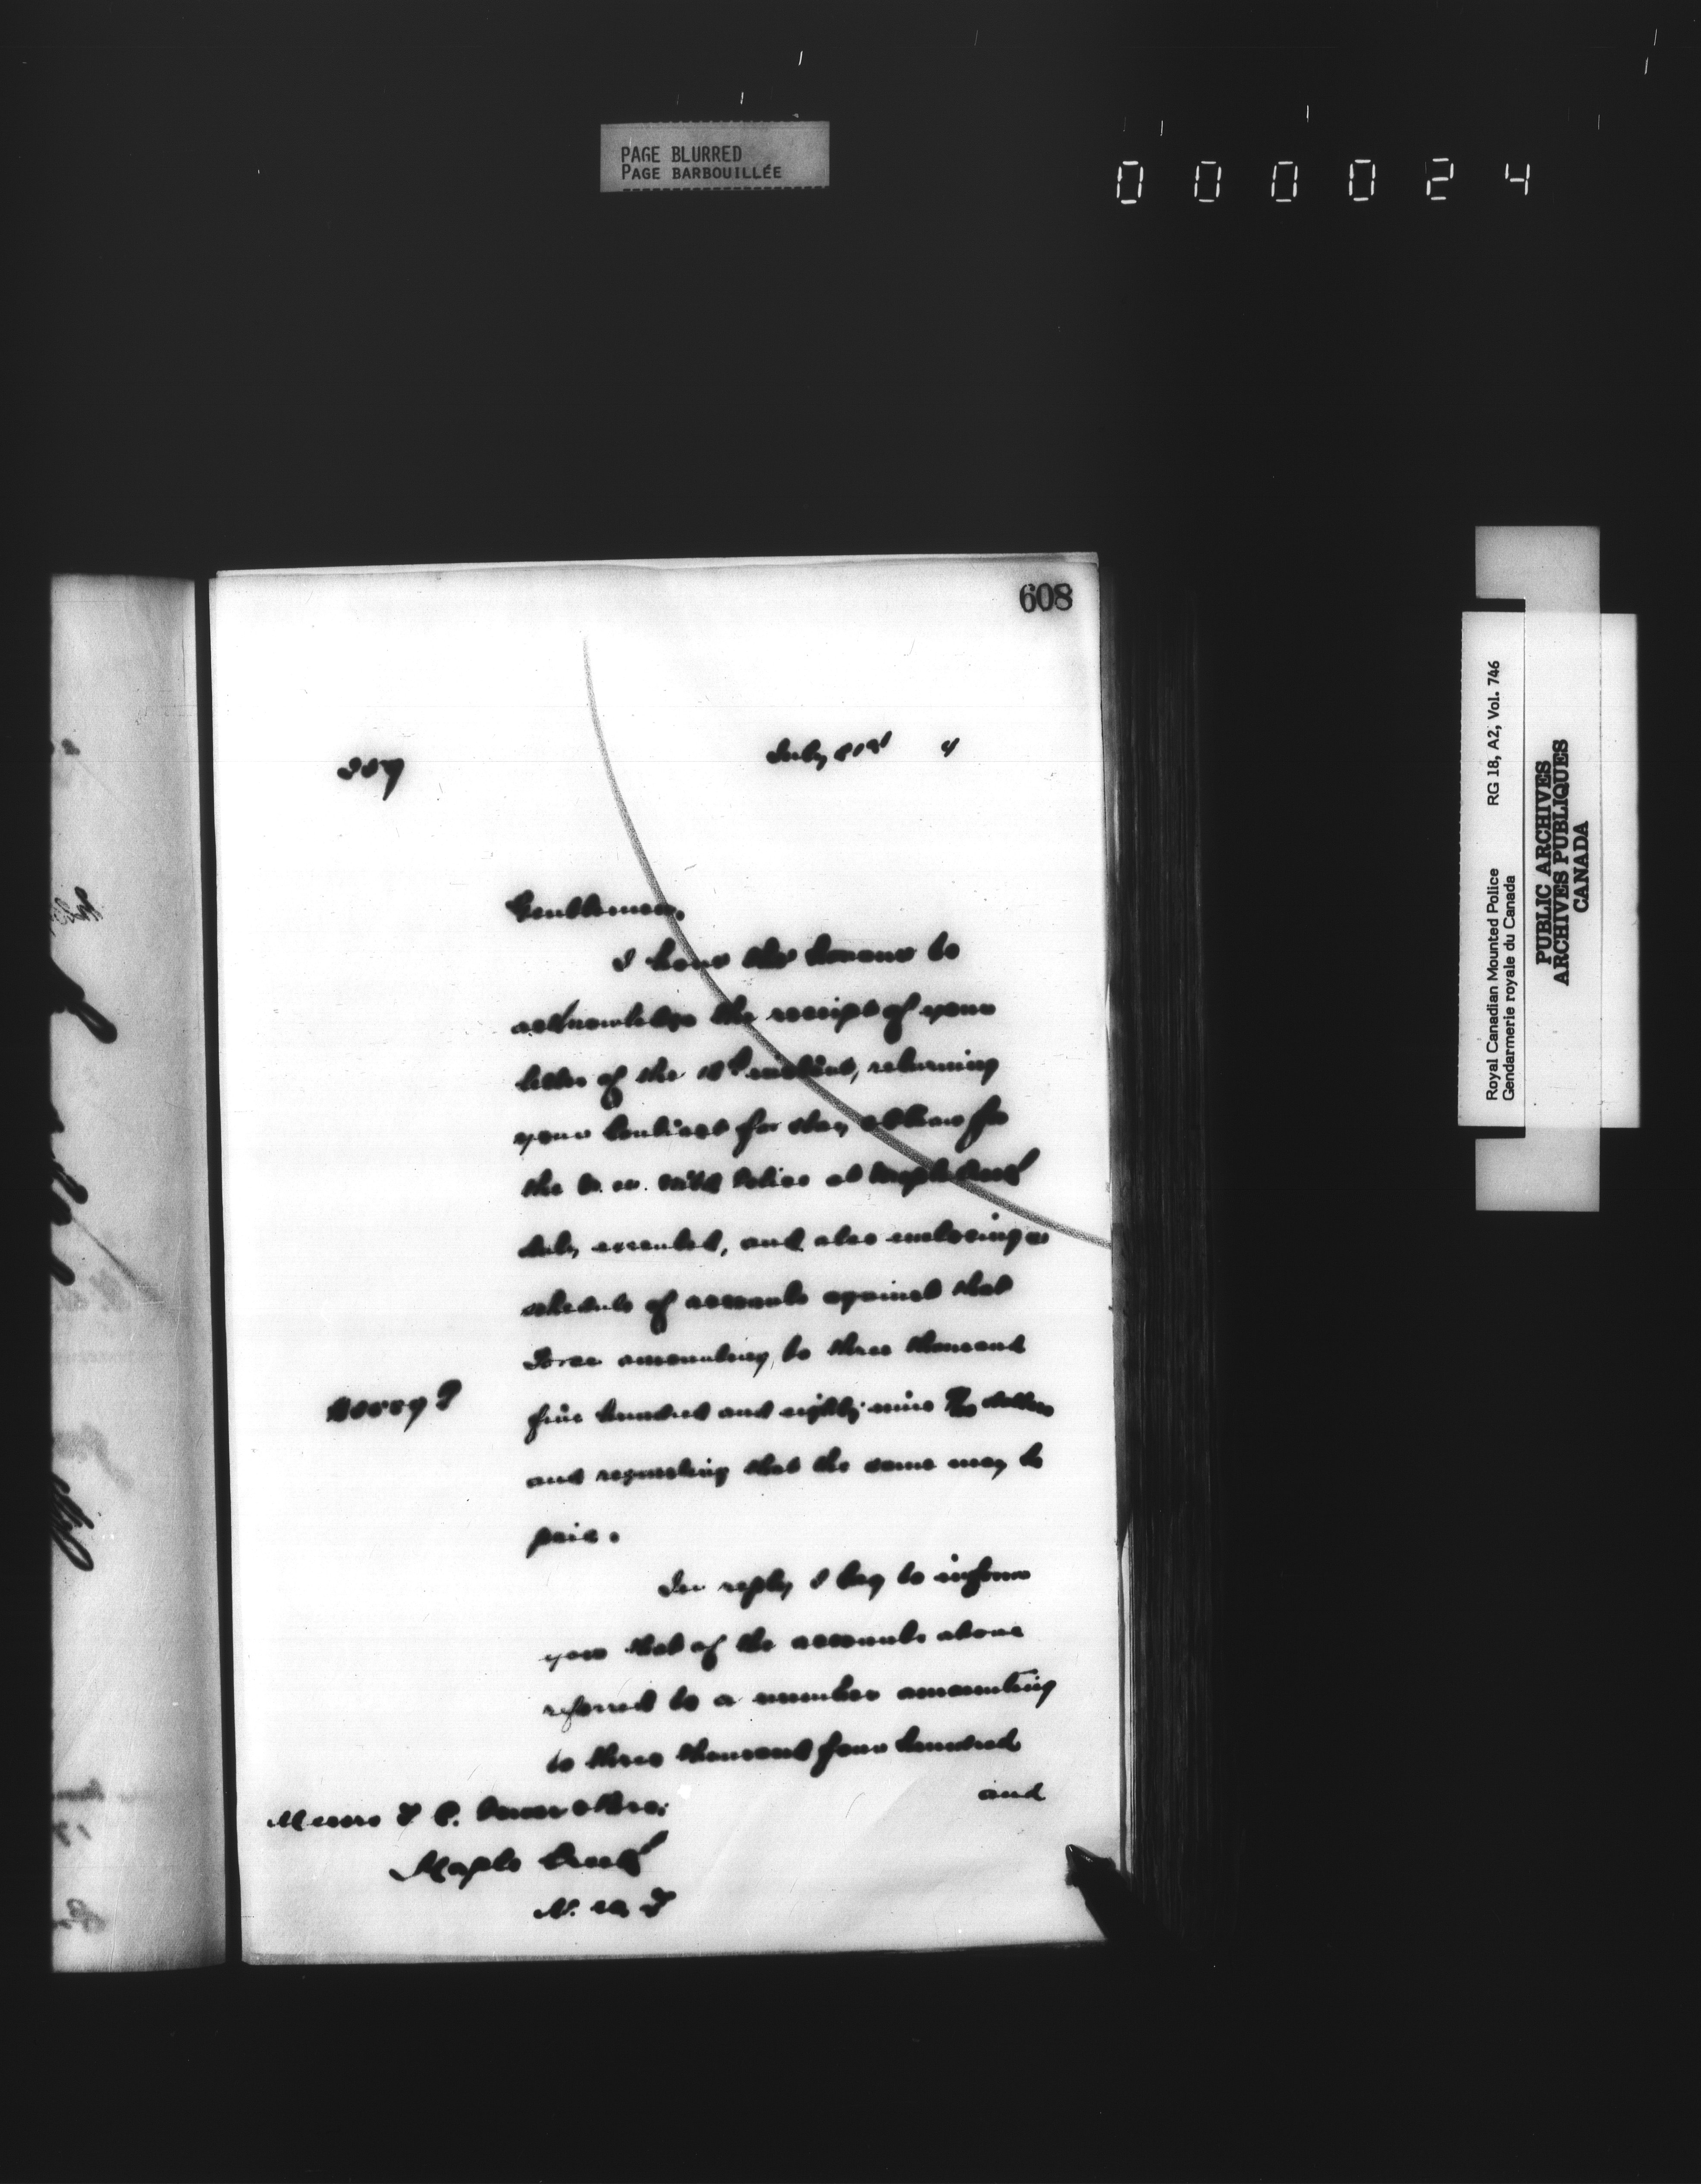 PAGE BLURRED
PAGE BARBOUILLÉE
000024
608
July 21st 4
Gentlemen,
I have the honour to
acknowledge the receipt of your
letter of the instant, returning
your contract for Hay & Straw for
the N. W. Mtd Police at Maple Creek
duly executed, and also enclosing a
schedule of accounts against that
Force amounting to three thousand
five hundred and eighty nine dollars
and requesting that the same may be
paid.
In reply I beg to inform
you that of the accounts above
referred to a number amounting
to three thousand four hundred
and
Messrs & Bro:
Maple Creek
N. W. T
Royal Canadian Mounted Police RG 18, A2, Vol. 746
Gendarmerie royale du Canada
PUBLIC ARCHIVES
ARCHIVES PUBLIQUES
CANADA